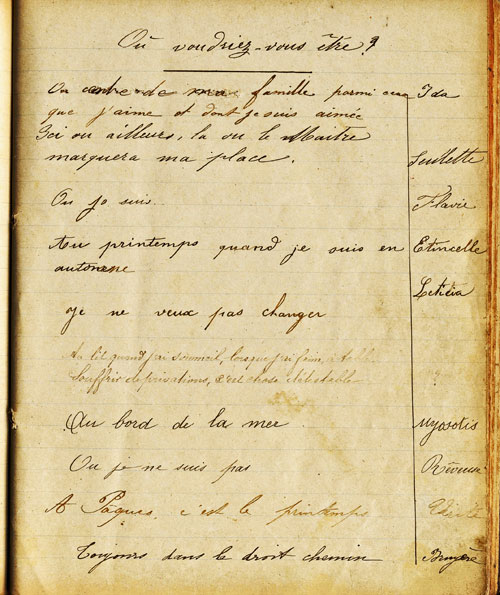 Où voudriez-vous être ?
Au centre de ma famille parmi ceux Ida
que j'aime et dont je suis aimée
Ici ou ailleurs, la ou le Maître
marquera ma place. Seulette
Ou je suis Flavie
Au printemps quand je suis en Etincelle
automne
Letitia
Je ne veux pas changer
Au lit quand j'ai sommeil, lorsque j'ai faim, à table
Souffrir de privations, c'est chose détestable
Au bord de la mer Myosotis
Ou je ne suis pas Rêveuse
A Pâques c'est le printemps
Toujours dans le droit chemin Bruyère